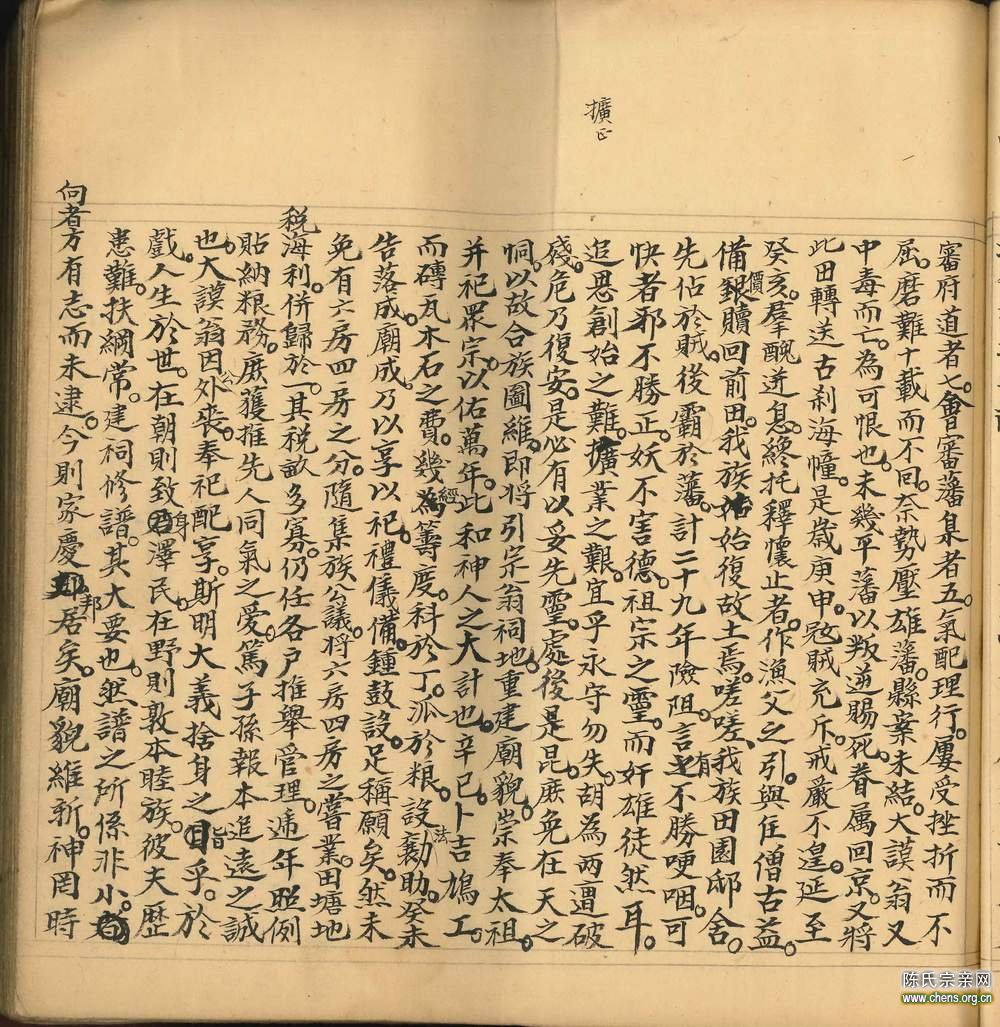 擴正
審府道者七。會審藩臬者五。氣配理行。屢受挫折而不
屈。磨難十載而不回。奈勢壓雄藩。縣案未結。大謨翁又
中毒而亡。為可恨也。未幾平藩以叛逆賜死。眷属回京。又將
此田轉送古刹海幢。是歲庚申。敌賊充斥。戒嚴不遑。延至
癸亥。羣醜迸息。終托釋懷止者。作漁父之引。與住僧古益。
備價銀贖回前田。我族始復故土焉。嗟嗟、我族田園邸舍。
先佔於賊。後霸於藩。計二十九年險阻。言之有不勝哽咽。可
快者邪不勝正。妖不害德。祖宗之靈。而奸雄徒然耳。
追思創始之難。擴業之艱。宜乎永守勿失。胡為兩遭破
殘。危乃復安。是必有以妥先靈。處後昆。庶免在天之
恫。以故合族圖維。即將引宗翁祠地。重建廟貌。崇奉太祖。
并祀眾宗。以佑萬年。此和神人之大計也。辛巳。卜吉鳩工。
而磚瓦木石之費。幾經籌度。科於丁。派於粮。設勷法助。癸未
告落成。廟成。乃以享以祀。禮儀備。鍾鼓設。足稱願矣。然未
免有六房四房之分。隨集族公議。將六房四房之嘗業。田塘地
稅海利。併歸於一。其稅畝多寡。仍任各户推舉管理。遞年照例
貼納粮務。庶獲推先人同氣之愛。篤子孫報本追遠之誠
也。大謨翁因公外喪。奉祀配享。斯明大義捨身之旨乎。於
戲。人生於世。在朝則致身澤民。在野則敦本睦族。彼夫歷
患難。扶綱常。建祠修譜。其大要也。然譜之所係非小。
向者方有志而未逮。今則家慶邦居矣。廟貌維新。神罔時
陈氏宗亲网
www.chens.org.cn